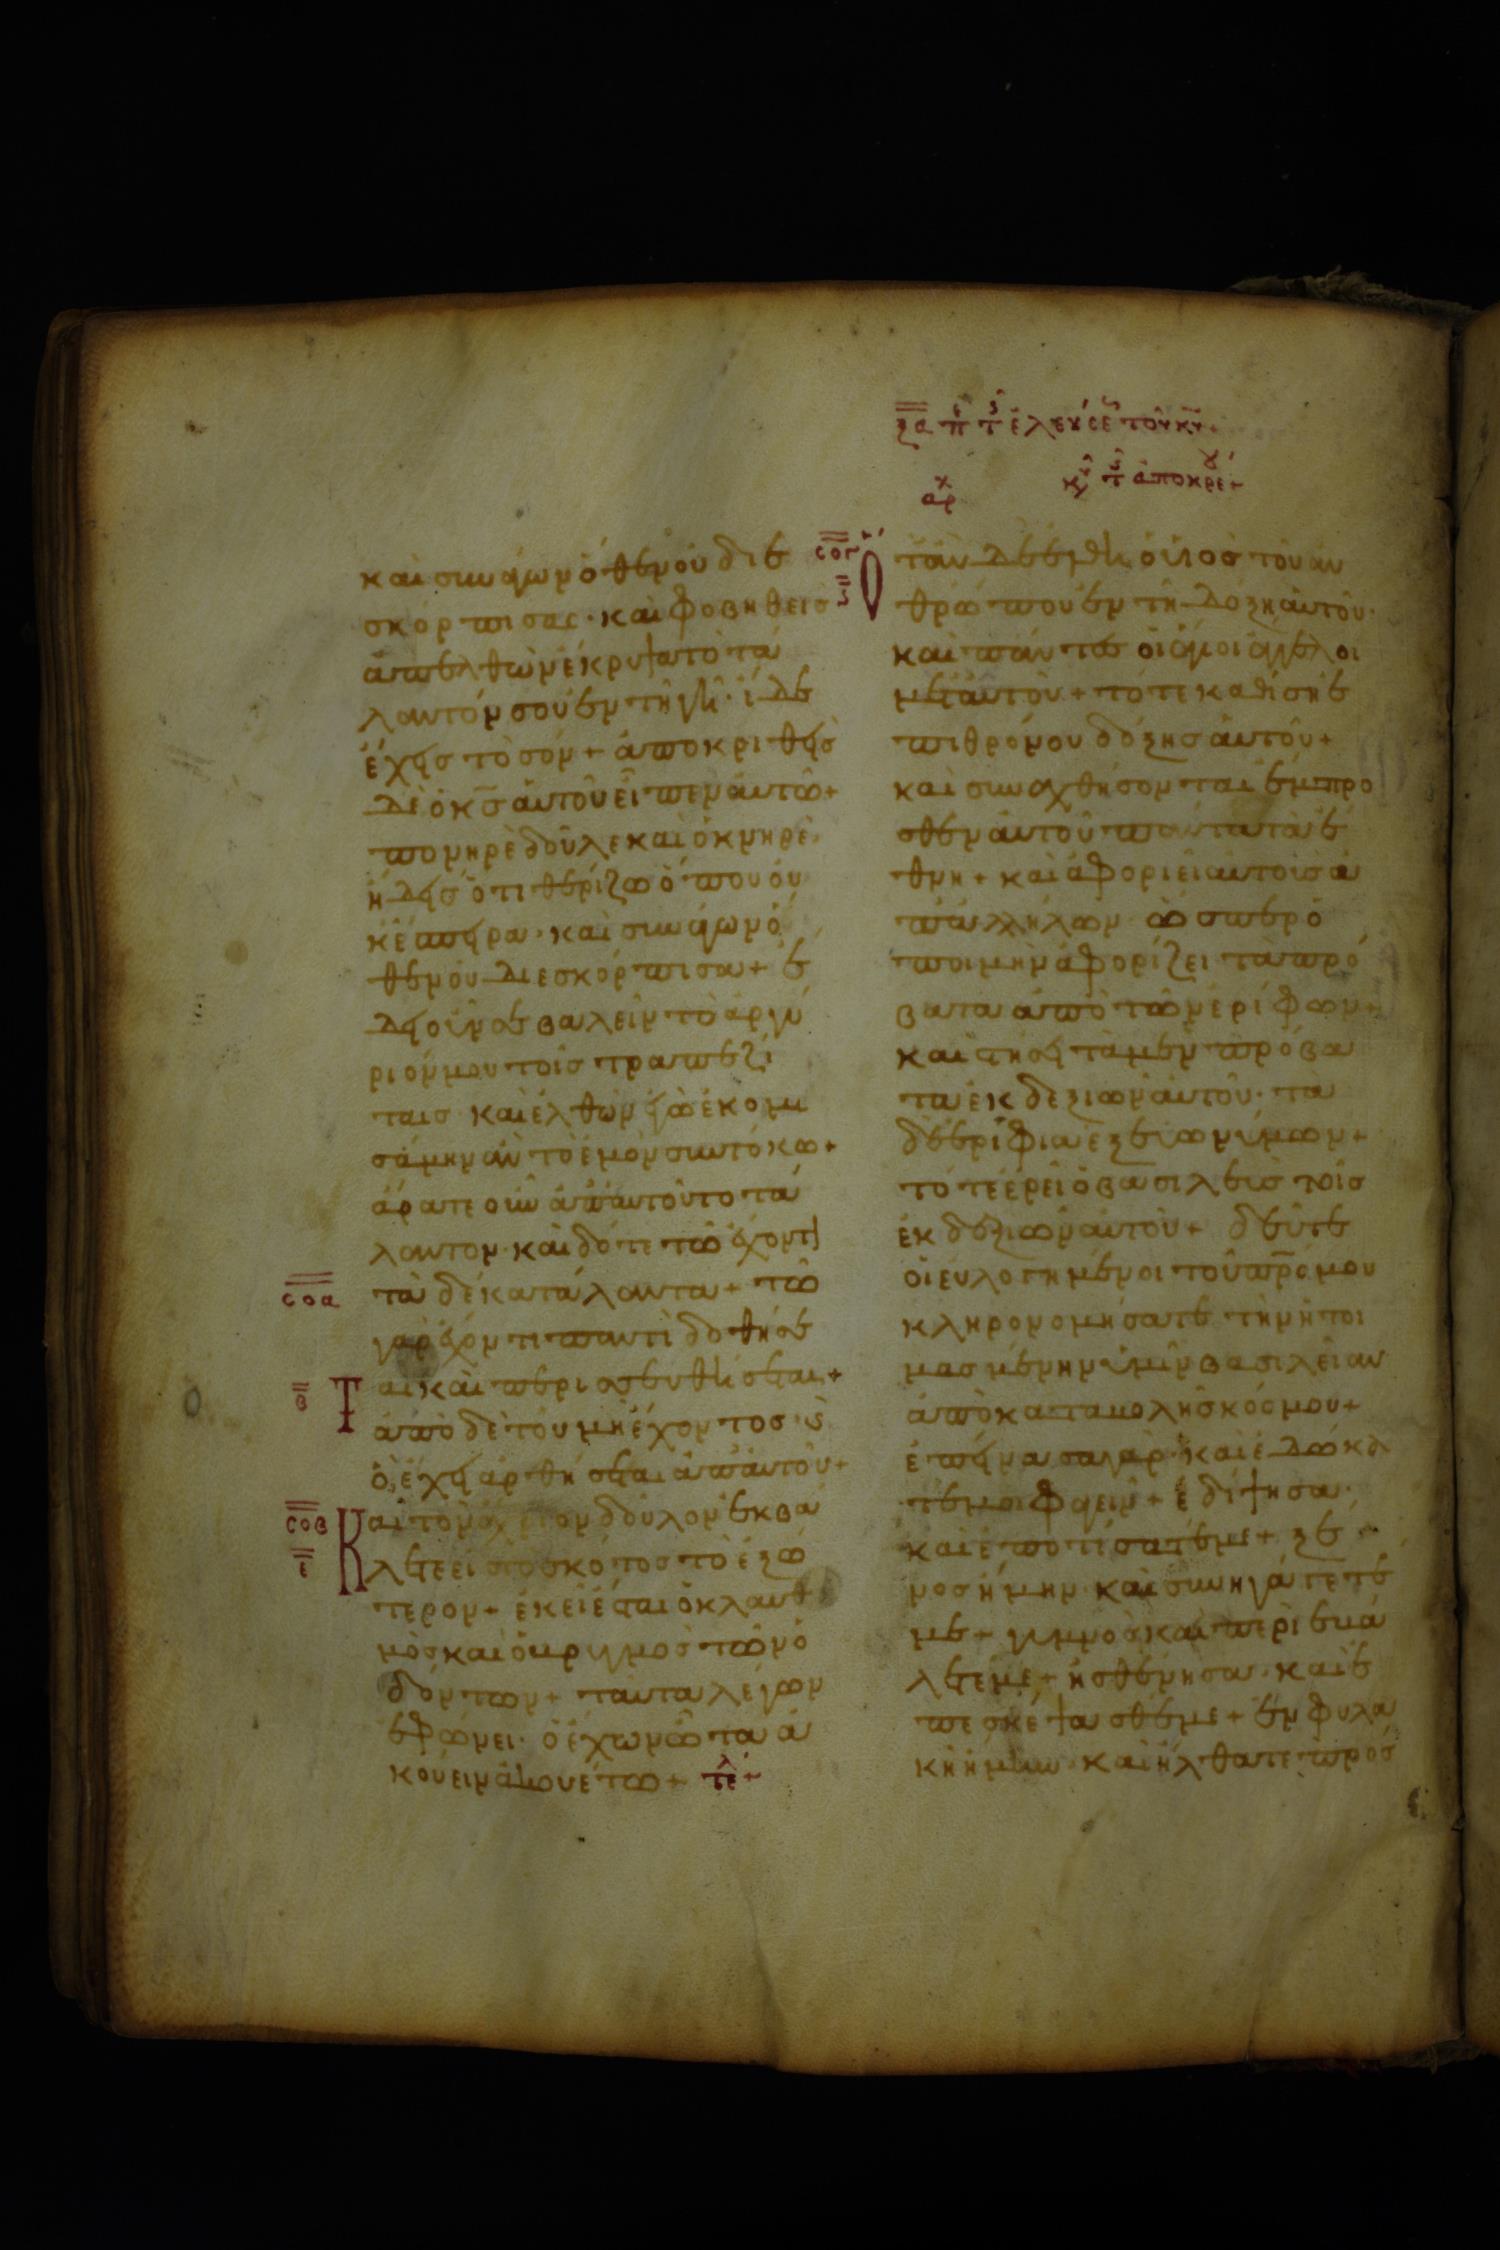 ξα π τ ελευσε του κυ
αρχ κυ τ αποκρε +
και συναγων ὅθεν οὐ διε
σκόρπισας · και φοβηθεις
ἀπελθὼν ἔκρυψα τὸ τά
λαντόν σου ἐν τῇ γῇ · ἴδε
ἔχεις τὸ σόν + ἀποκριθεις
δὲ ὁ κ̅ς αὐτοῦ εἶπεν αὐτῶ +
πονηρὲ δοῦλε και ὀκνηρὲ ·
ἤδεις ὅτι θερίζω ὅπου οὐ
κ ἔσπειρα · και συνάγων ὅ
θεν οὐ διεσκόρπισα + ἔ
δει οὖν σε βαλεῖν τὸ ἀργύ
ριόν μου τοῖς τραπεζί
ταις και ἐλθὼν ἐγὼ ἐκομι
σάμην ἂν τὸ ἐμὸν συν τόκω +
ἄρατε οὖν ἀπ αὐτοῦ το τά
λαντον · και δότε τῶ ἔχοντι
τὰ δέκα τάλαντα + τῶ
σοα
γὰρ ἔχοντι παντὶ δοθήσε
β
Ται και περισσευθήσεται +
ἀπὸ δὲ τοῦ μὴ ἔχοντος · και
ὃ ἔχει ἀρθήσεται ἀπ αὐτοῦ +
σοβ
ε
Και τὸν ἀχρεῖον δοῦλον ἐκβά
λετε εἰς τὸ σκότος τὸ ἐξώ
τερον + ἐκεῖ ἔσται ὁ κλαυθ
μὸς και ὁ βρυγμὸς τῶν ὀ
δόντων + ταυτα λέγων
ἐφώνει · ὁ ἔχων ὦτα ἀ
κούειν ἀκουέτω + τελ +
σογ
ϛ
Ὅταν δὲ ἔλθη ὁ υἱὸς τοῦ ἀν
θρώπου ἐν τῆ δόξη αὐτοῦ ·
και πάντες οἱ ἅγιοι ἄγγελοι
μετ αὐτοῦ + τότε καθίσει ἐ
πι θρόνου δόξης αὐτοῦ +
και συναχθήσονται ἔμπρο
σθεν αὐτοῦ παντα τὰ ἔ
θνη + και ἀφοριεῖ αὐτοὺς ἀ
π ἀλλήλων ὥσπερ ὁ
ποιμὴν ἀφορίζει τὰ πρό
βατα ἀπὸ τῶν ἐρίφων +
και στήσει τὰ μὲν πρόβα
τα ἐκ δεξιῶν αὐτοῦ · τὰ
δὲ ἐρίφια ἐξ εὐωνύμων +
τότε ἐρεῖ ὁ βασιλεὺς τοῖς
ἐκ δεξιῶν αὐτοῦ + δεῦτε
οἱ εὐλογημένοι τοῦ π̅ρ̅ς μου
κληρονομήσατε τὴν ἡτοι
μασμένην ὑμῖν βασιλείαν
ἀπὸ καταβολῆς κόσμου +
ἐπείνασα γὰρ · και ἐδώκα
τέ μοι φαγεῖν + ἐδίψησα ·
και ἐποτίσατέ με + ξέ
νος ἤμην και συνηγάγετέ
με + γυμνὸς και περιεβά
λετέ με + ἠσθένησα · και ἐ
πεσκέψασθέ με + ἐν φυλα
κῆ ἤμην · και ἤλθατε πρός